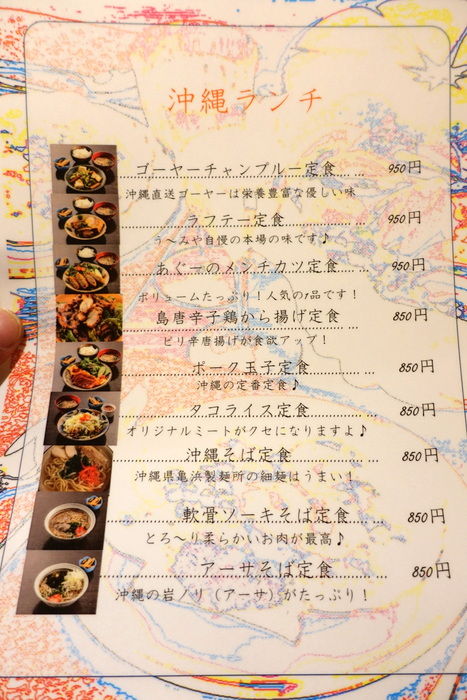 沖縄ランチ
ゴーヤーチャンプルー定食 950円
沖縄直送ゴーヤーは栄養豊富な優しい味
ラフテー定食 950円
う～みや自慢の本場の味です♪
あぐーのメンチカツ定食 950円
ボリュームたっぷり！人気の1品です！
島唐辛子鶏から揚げ定食 850円
ピリ辛唐揚げが食欲アップ！
ポーク玉子定食 850円
沖縄の定番定食♪
タコライス定食 850円
オリジナルミートがクセになりますよ♪
沖縄そば定食 850円
沖縄県亀浜製麺所の細麺はうまい！
軟骨ソーキそば定食 850円
とろ～り柔らかいお肉が最高♪
アーサそば定食 850円
沖縄の岩ノリ（アーサ）がたっぷり！